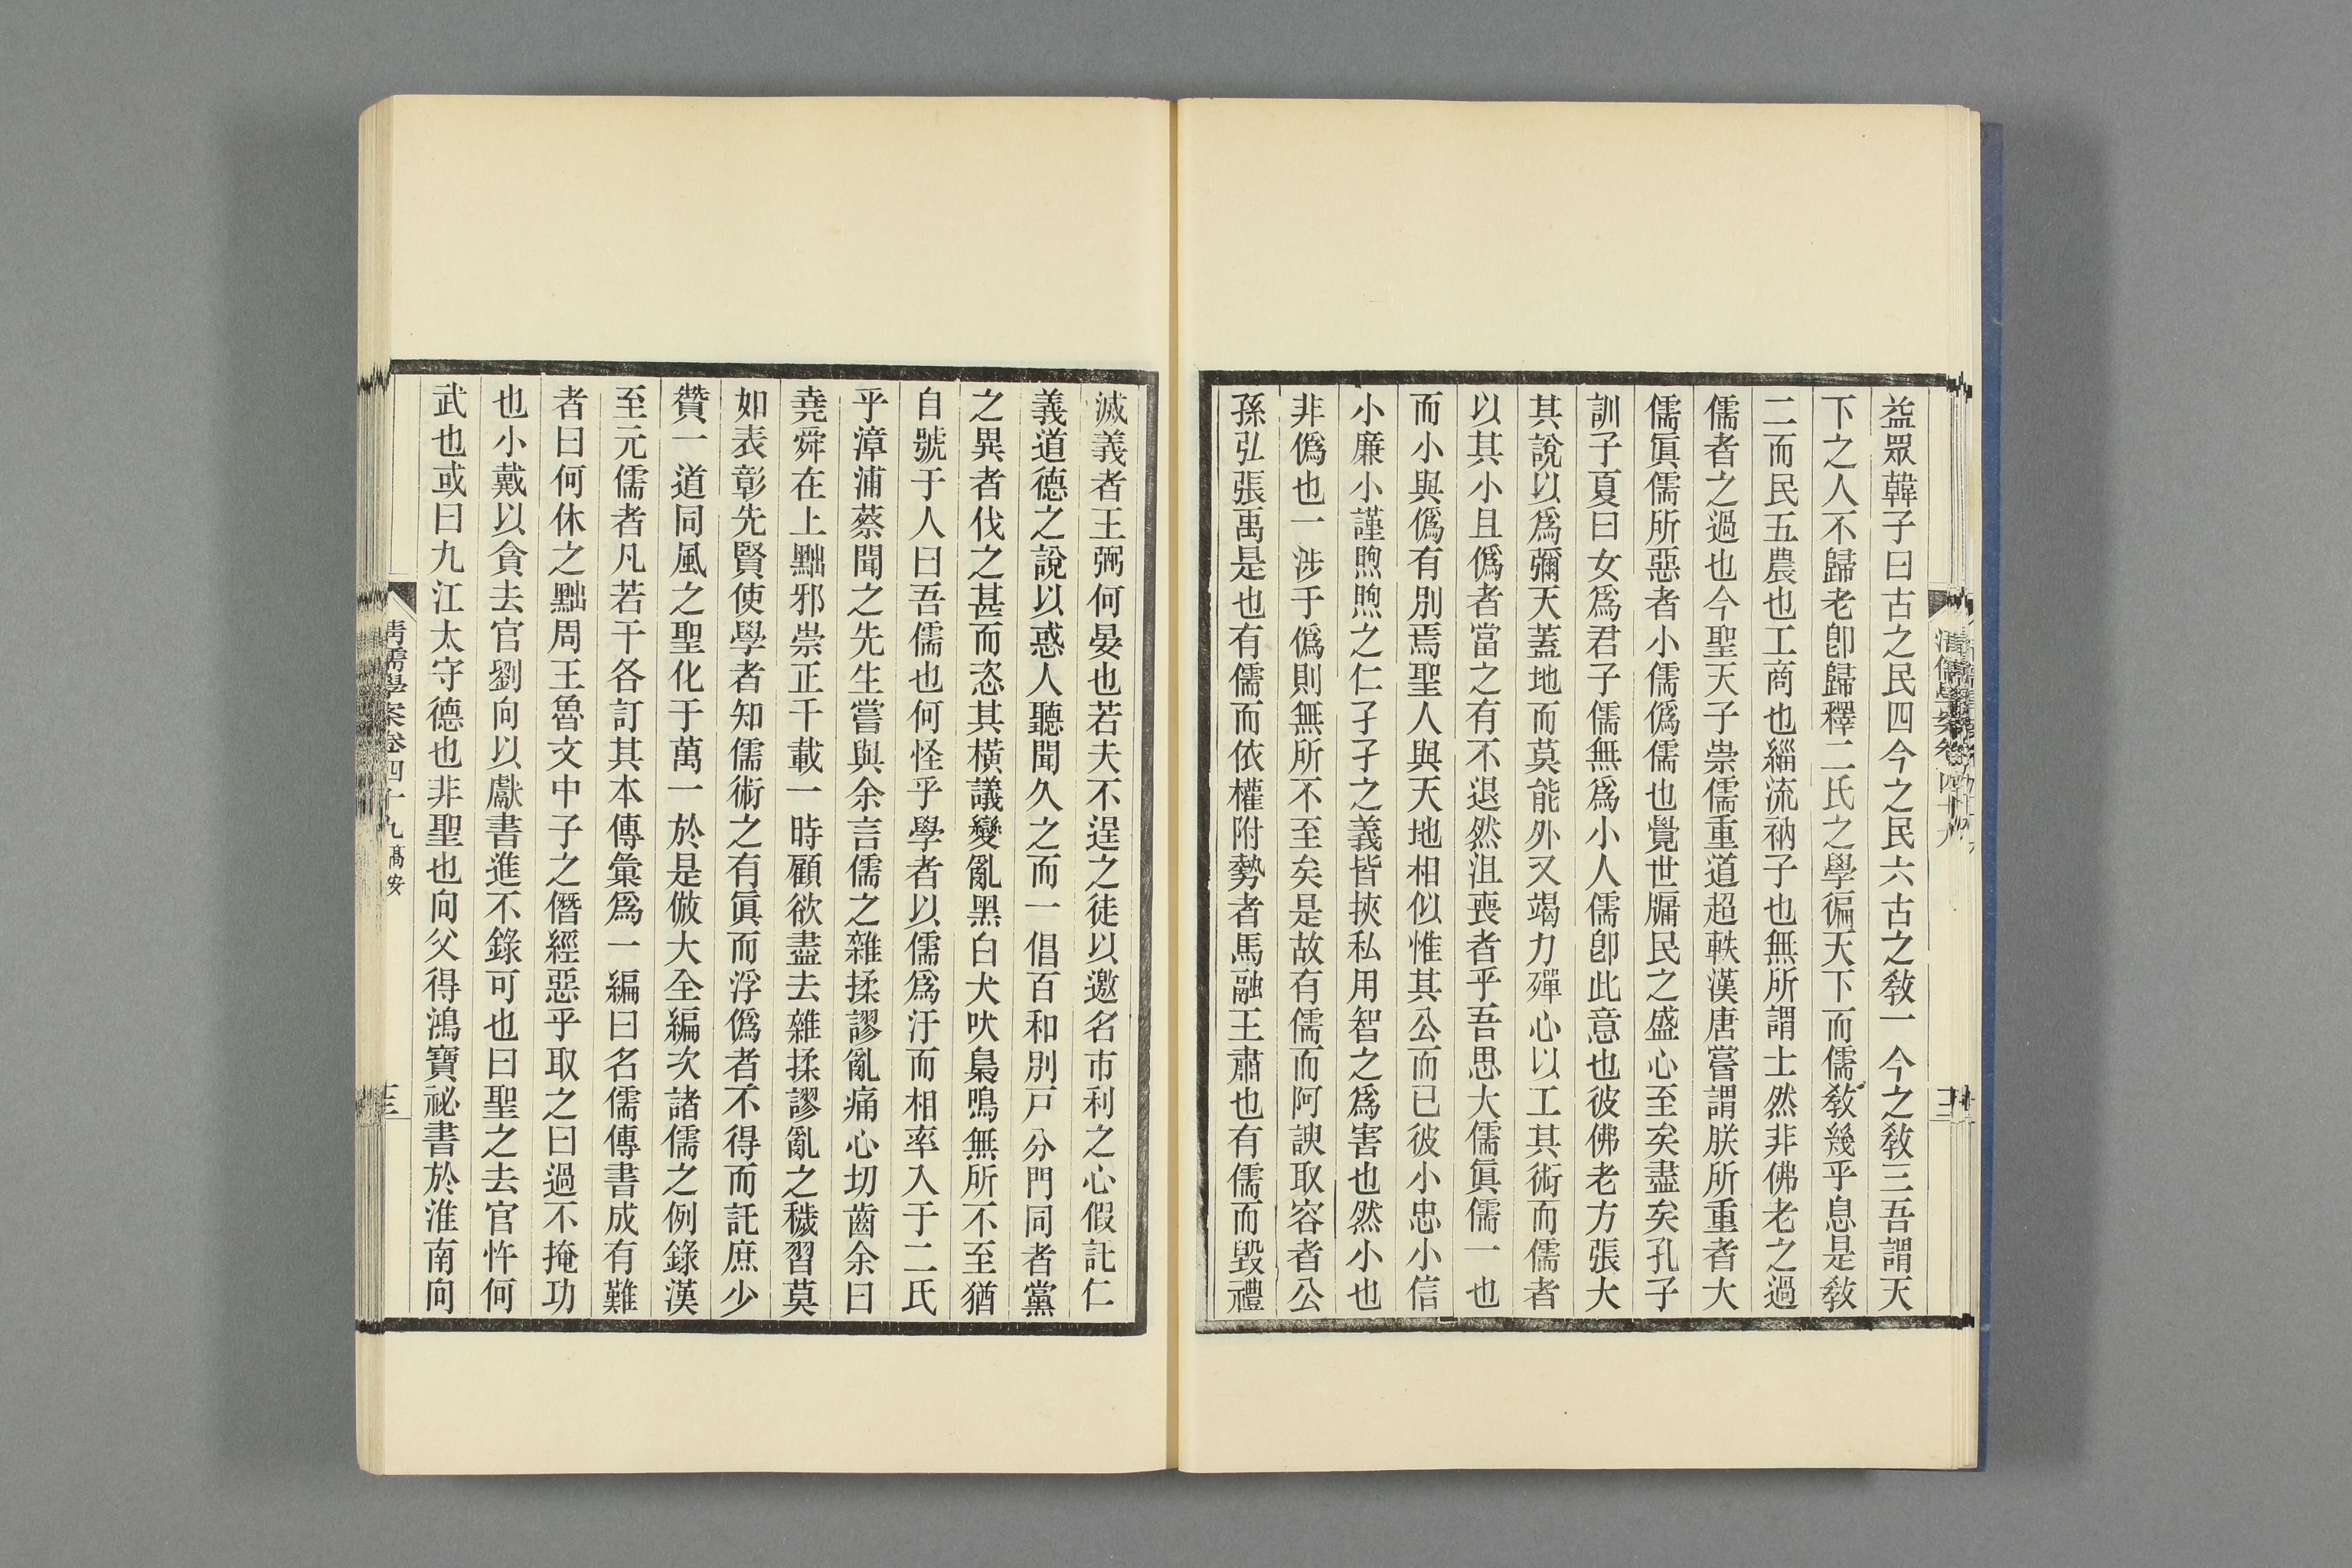 益眾韓子曰古之民四今之民六古之敎一今之敎三吾謂天
下之人不歸老卽歸釋二氏之學徧天下而儒敎幾乎息是敎
二而民五農也工商也緇流衲子也無所謂士然非佛老之過
儒者之過也今聖天子崇儒重道超軼漢唐嘗謂朕所重者大
儒眞儒所惡者小儒僞儒也覺世牖民之盛心至矣盡矣孔子
訓子夏曰女爲君子儒無爲小人儒卽此意也彼佛老方張大
其說以爲彌天蓋地而莫能外又竭力殫心以工其術而儒者
以其小且僞者當之有不退然沮喪者乎吾思大儒眞儒一也
而小與僞有別焉聖人與天地相似惟其公而已彼小忠小信
小廉小謹煦煦之仁孑孑之義皆挾私用智之爲害也然小也
非僞也一涉于僞則無所不至矣是故有儒而阿諛取容者公
孫弘張禹是也有儒而依權附勢者馬融王肅也有儒而毀禮
滅義者王弼何晏也若夫不逞之徒以邀名市利之心假託仁
義道德之說以惑人聽聞久之而一倡百和別戸分門同者黨
之異者伐之甚而恣其橫議變亂黑白犬吠梟鳴無所不至猶
自號于人曰吾儒也何怪乎學者以儒爲汙而相率入于二氏
乎漳浦蔡聞之先生嘗與余言儒之雜揉謬亂痛心切齒余曰
堯舜在上黜邪崇正千載一時顧欲盡去雜揉謬亂之穢習莫
如表彰先賢使學者知儒術之有眞而浮僞者不得而託庶少
贊一道同風之聖化于萬一於是倣大全編次諸儒之例錄漢
至元儒者凡若干各訂其本傳彙爲一編曰名儒傳書成有難
者曰何休之黜周王魯文中子之僭經惡乎取之曰過不掩功
也小戴以貪去官劉向以獻書進不錄可也曰聖之去官忤何
武也或曰九江太守德也非聖也向父得鴻寶祕書於淮南向
清儒學案卷四十九 高安
十三